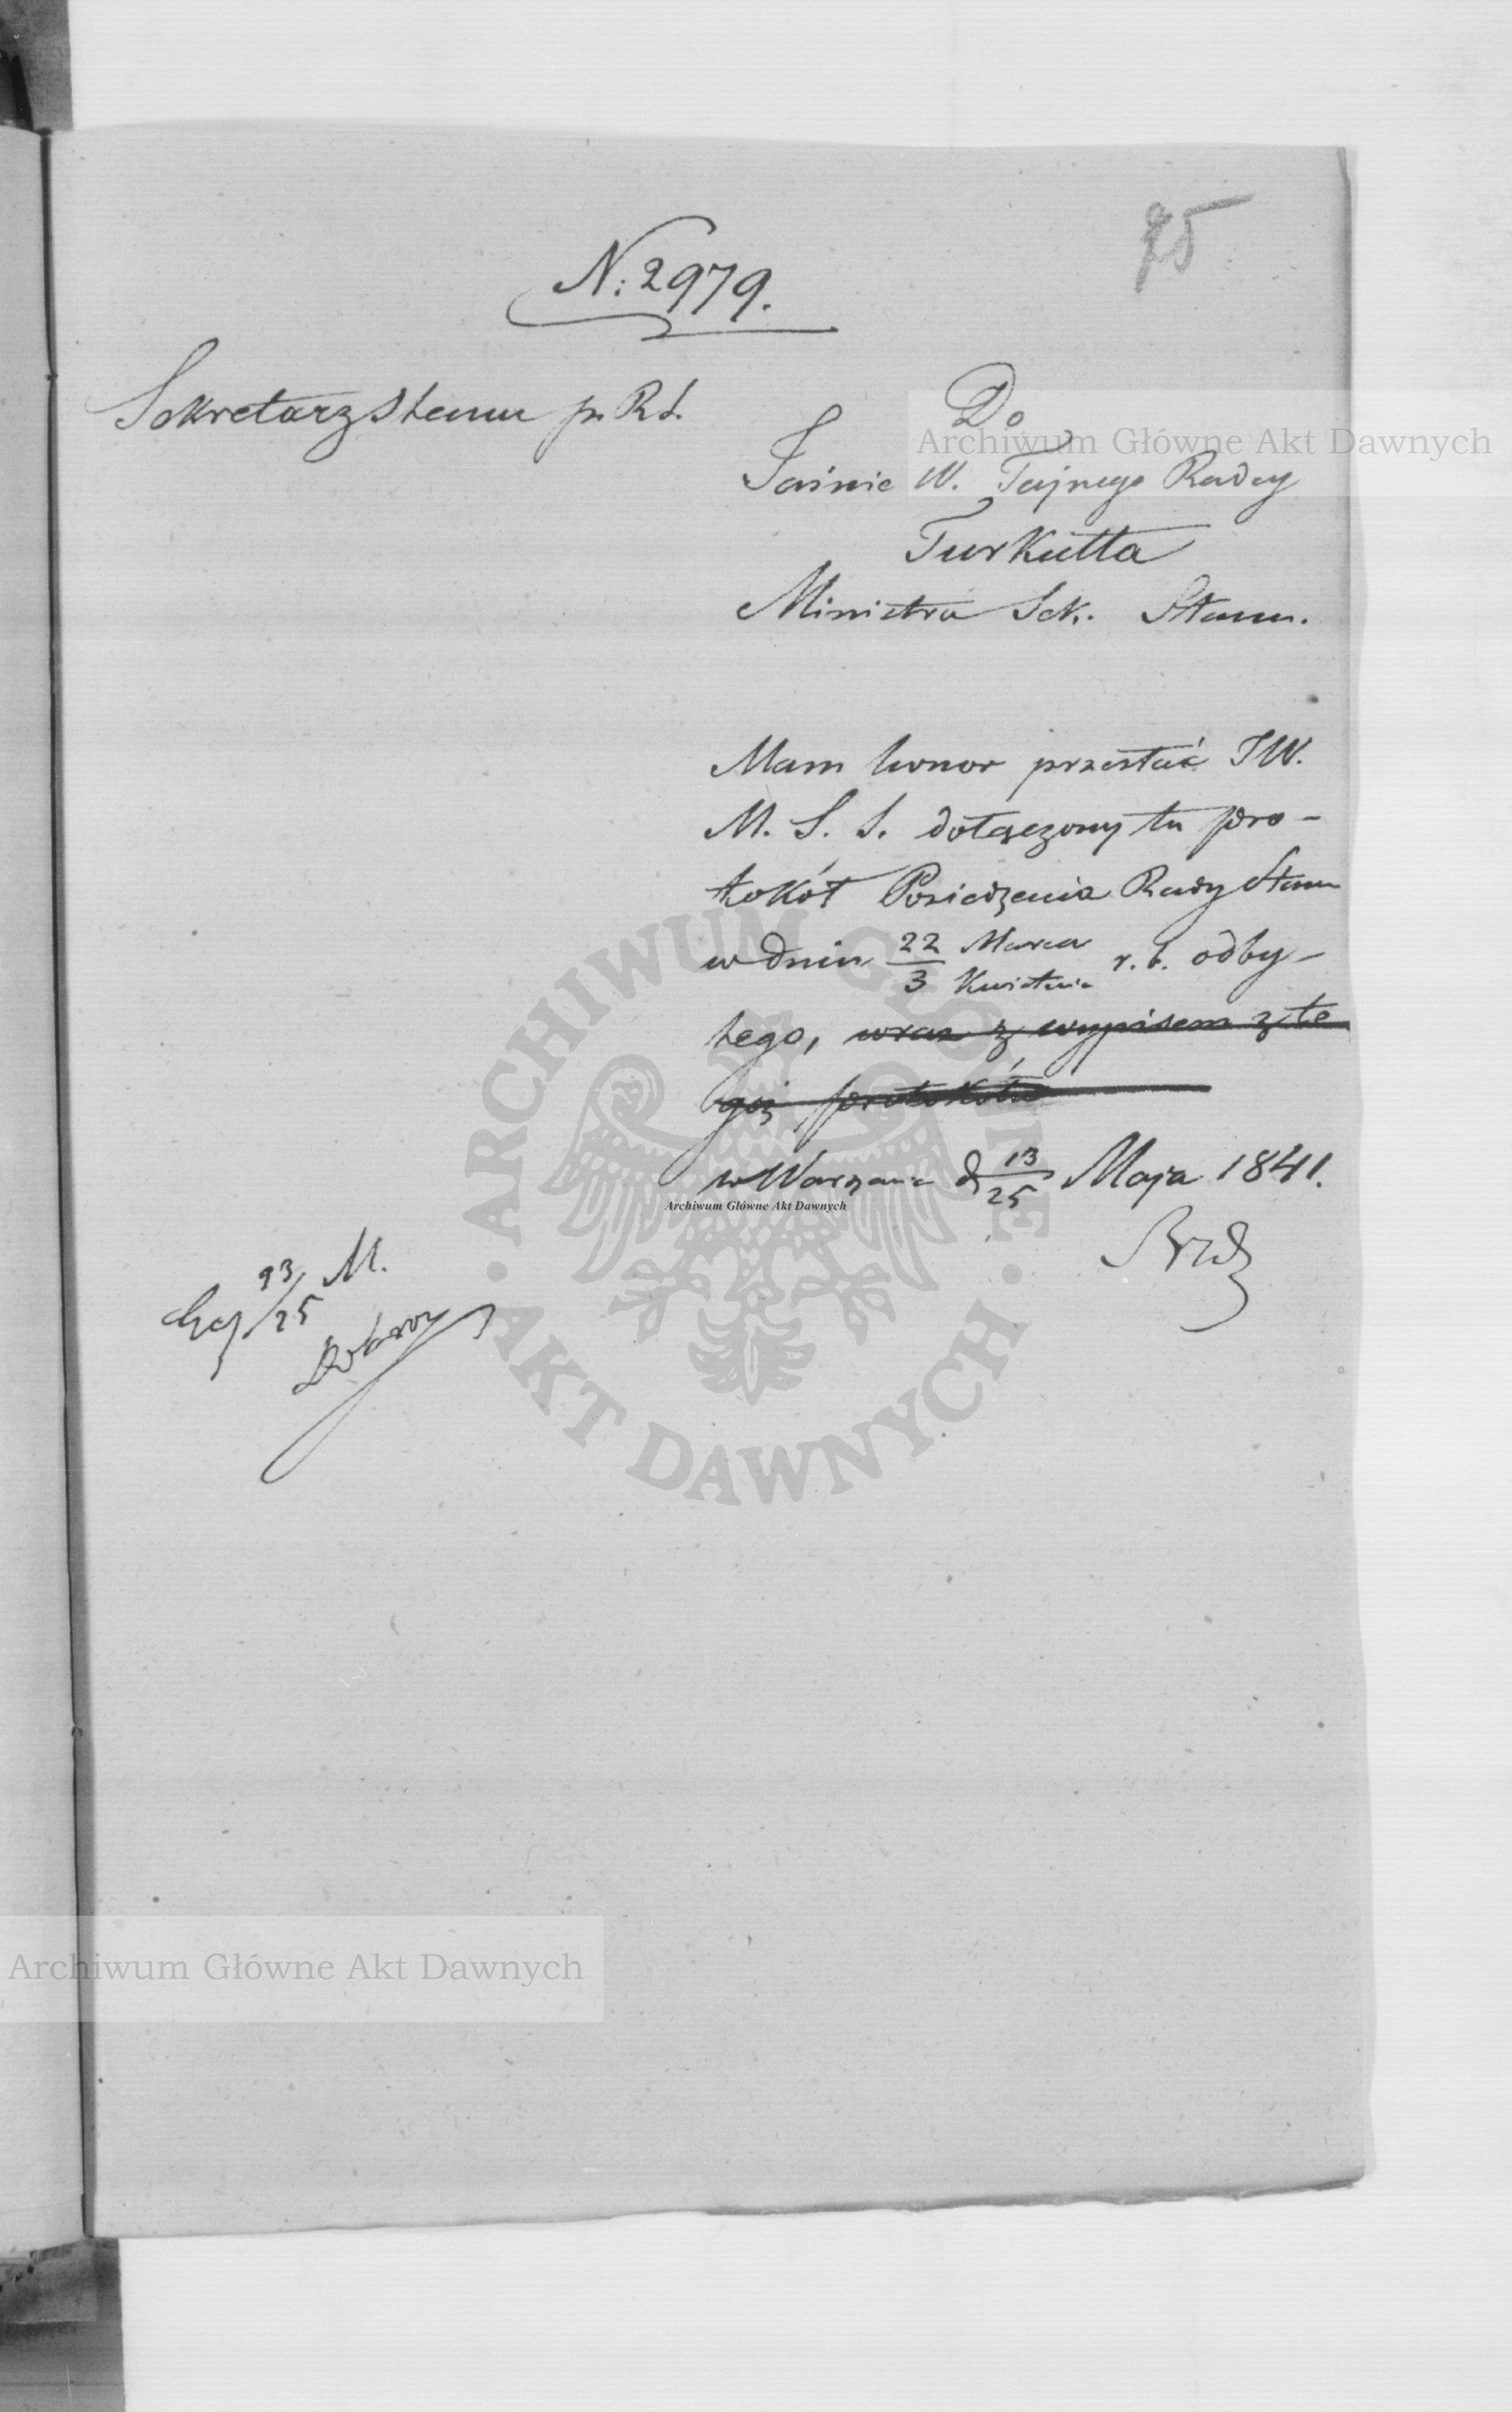 75
N: 2979.
Sekretarz Stanu p. R. S.
Do
Jaśnie W. Tajnego Radcy
Turkułła
Ministra Sek. Stanu.
Mam honor przesłać JW.
M. S. S. dołączony tu pro-
tokół Posiedzenia Rady Stanu
w dniu 22 Marca / 3 Kwietnia r. b. odby-
tego, wraz z wypisem z te
goż protokółu
w Warszawie d 13/25 Maja 1841.
13/25 M.
Archiwum Główne Akt Dawnych
Archiwum Główne Akt Dawnych
Archiwum Główne Akt Dawnych
ARCHIWUM GŁÓWNE · AKT DAWNYCH ·